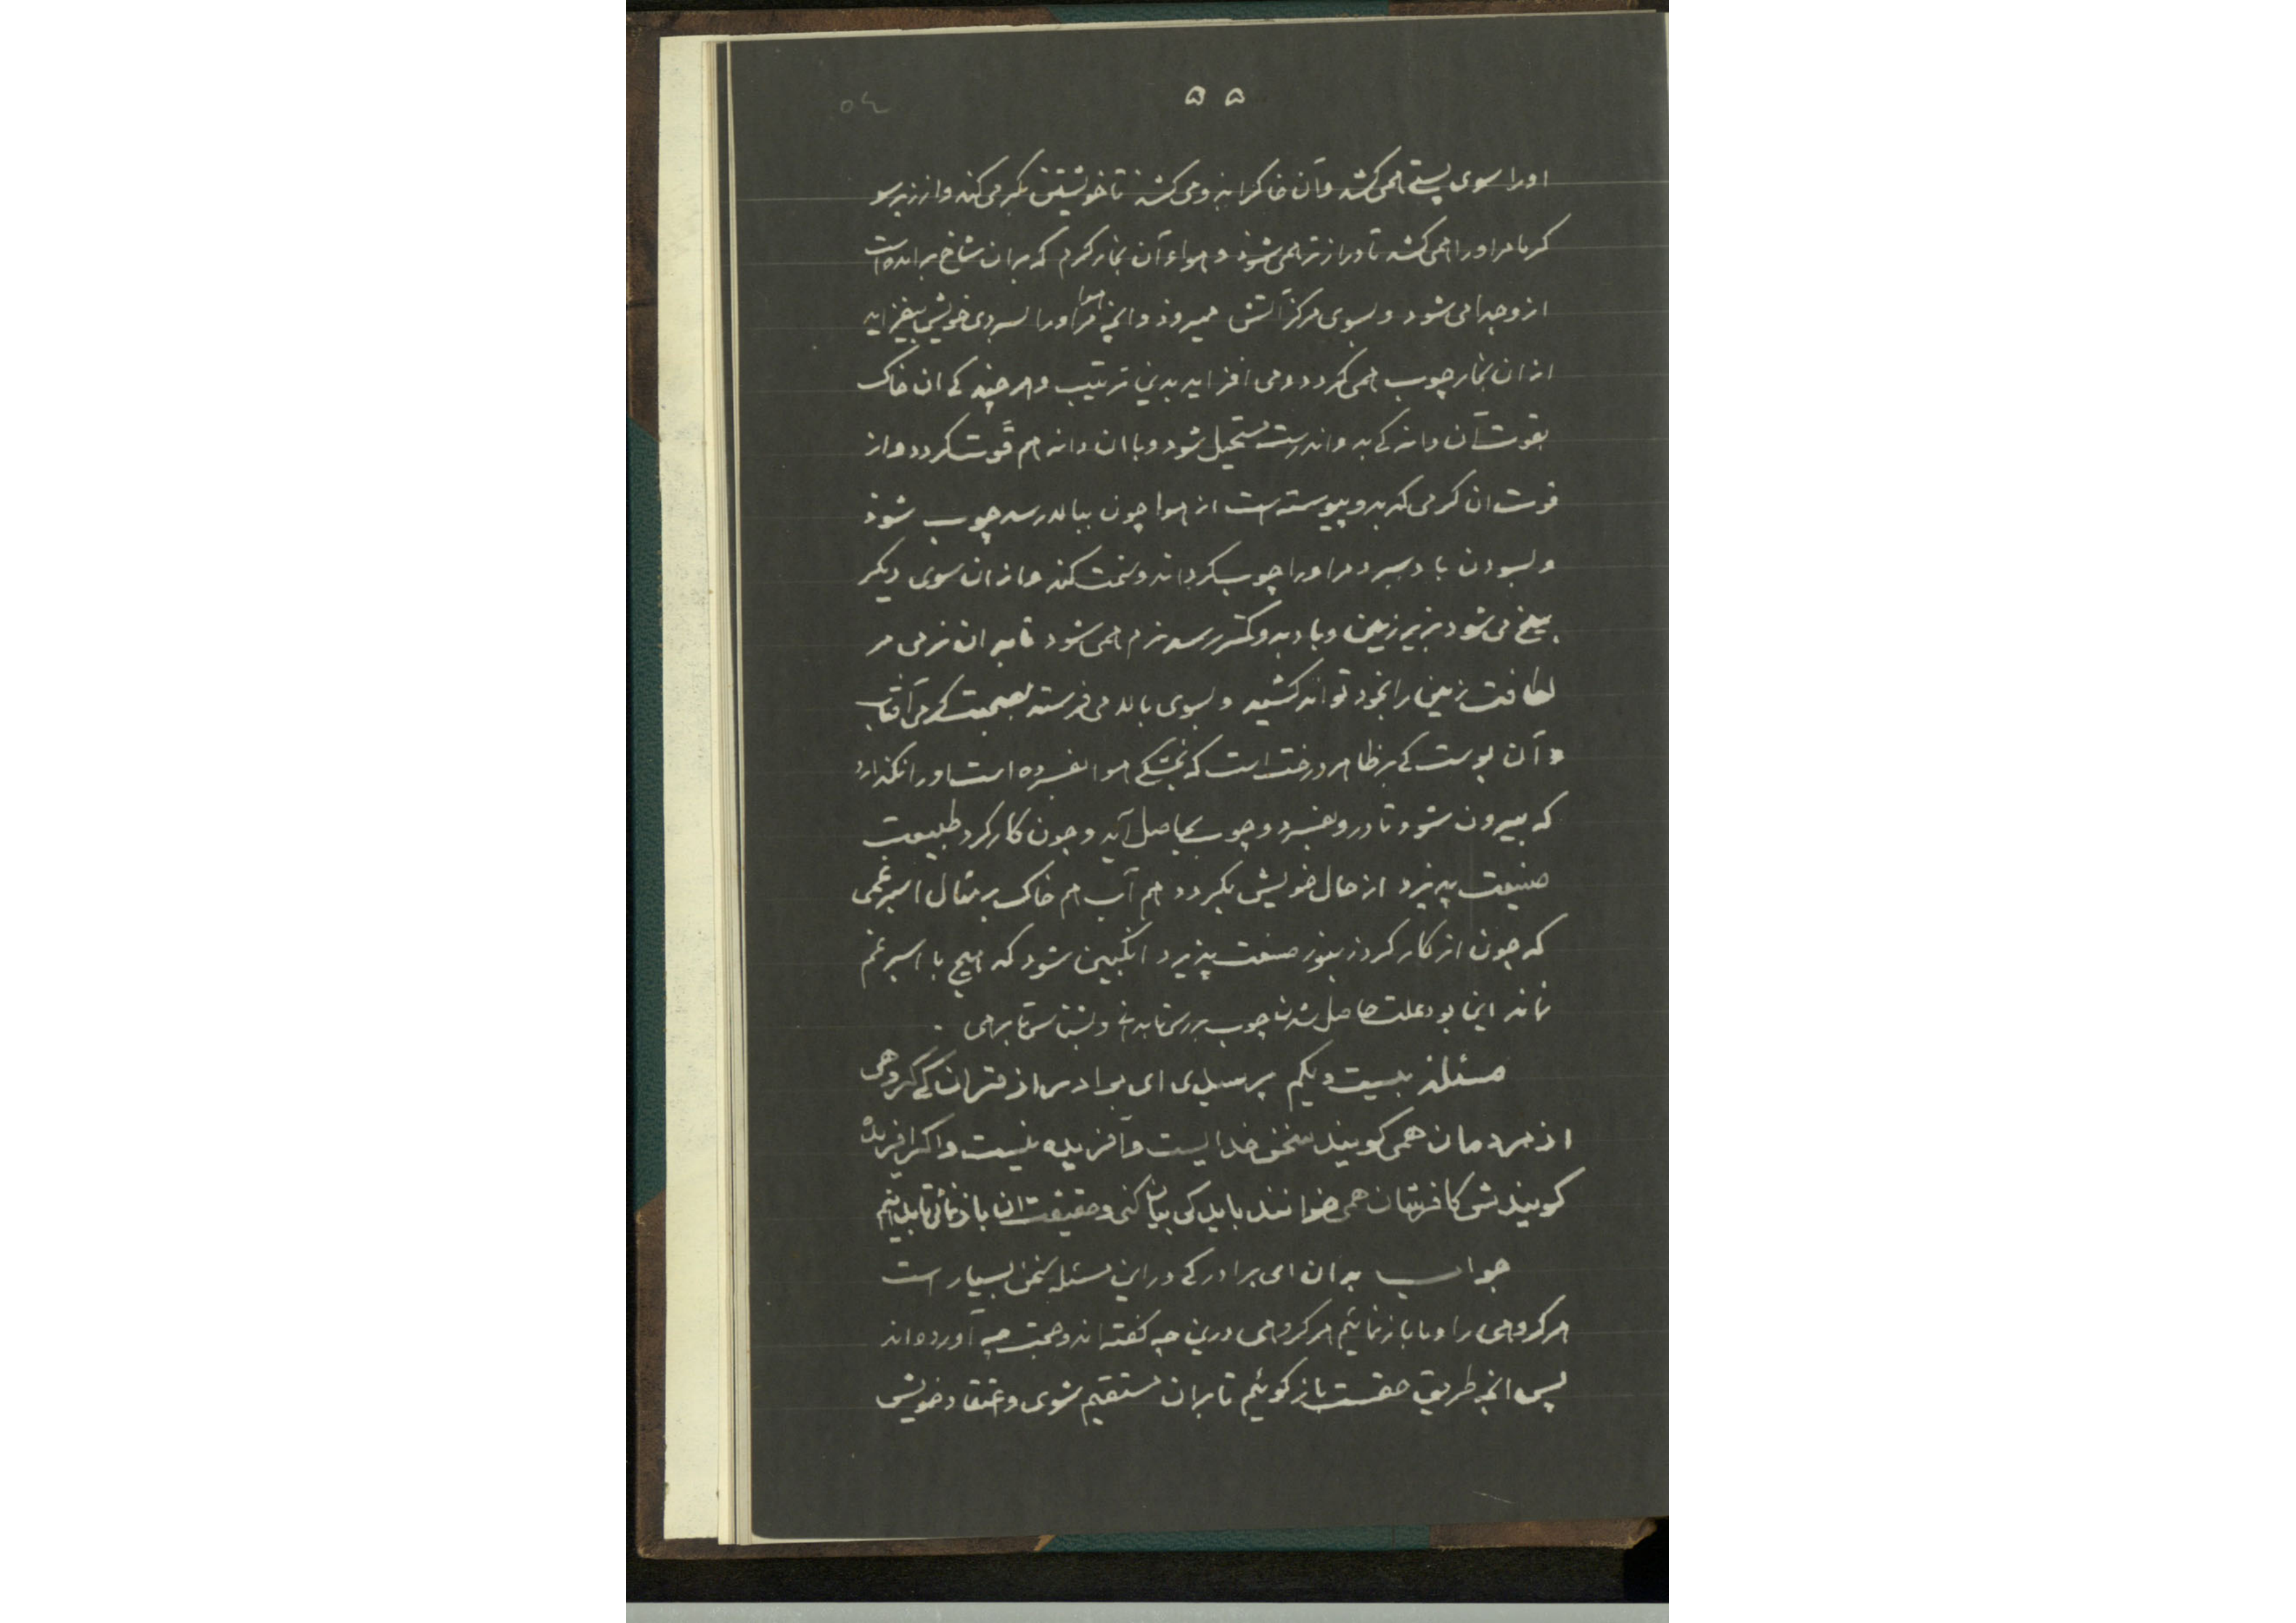 ۵۵
۵۴
اورا سوی پستی همی کشد و آن خاکرا بزو می کشد تا خویشتن بگیر می کند و از زبر سو
گرما مر اورا همی کشد تا دراز تر همی شوذ و هواء آن بخار گرم که بران شاخ بر امده است
ازو جدا می شود و بسوی مرکز آتش میروذ و انچه هوا مر اورا بسردی خویش بیفزاید
از ان بخار چوب همی گردد و می افزاید بدین ترتیب و هر چند کی ان خاک
بقوت آن دانه کی بدو اندرست مستحیل شود و با ان دانه هم قوت گردد و از
قوت ان گرمی که بدو پیوسته است از هوا چون ببالا رسد چوب شوذ
و بسودن باد سرد مر اورا چوب گرداند و سخت کند و از ان سوی دیگر
بیخ می شود بزیر زمین و باد بدو کمتر رسد نرم همی شود تا بدان نرمی مر
لطافت زمین را بخود تواند کشید و بسوی بالا می فرستد بصحبت گرمی آفتاب
و آن پوست کی بر ظاهر درخت است که بخشکی هوا بفسرده است اورا نگذارد
که بیرون شود تا درو بفسرد و چوب بحاصل آید و چون کارکرد طبیعت
صنیعت پذیرد از حال خویش بگردد هم آب هم خاک بر مثال اسپرغمی
که چون از کارکرد زنبور صنعت پذیرد انگبین شود که هیچ با اسپرغم
نماند این بود علت حاصل شدن چوب بررس تا بدانی و بشناس تا برهی .
مسئله بیست و یکم پرسیدی ای برادر از قران کی گروهی
از مردمان همی گویند سخن خدایست و آفریده نیست و اگر افریده
گویندش کافرشان همی خوانند باید کی بیان کنی و حقیقت ان باز نمائی تا بدانیم
جواب بدان ای برادر کی در این مسئله سخن بسیار است
هر گروهی را و ما باز نمائیم هر گروهی درین چه گفته اند و حجت چه آورده اند
پس انچه طریق حقست باز گوئیم تا بران مستقیم شوی و اعتقاد خویش